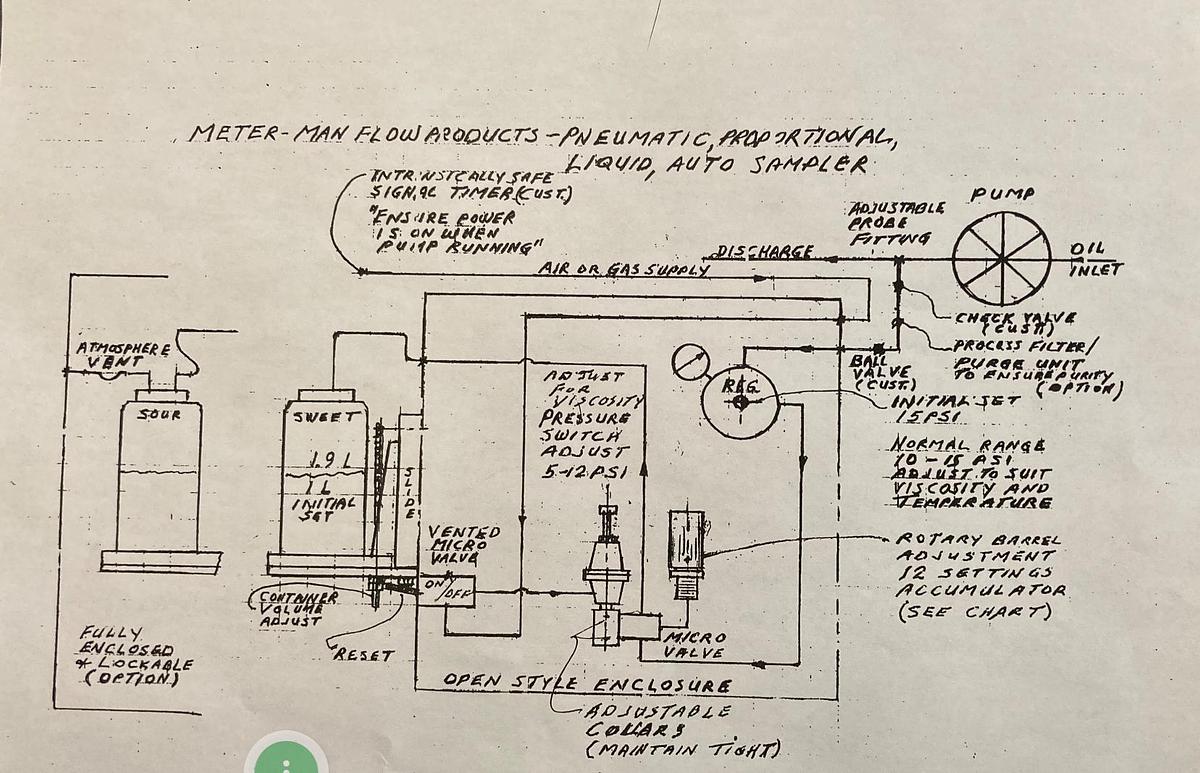 METER-MAN FLOW PRODUCTS - PNEUMATIC, PROPORTIONAL,
LIQUID, AUTO SAMPLER
INTRINSTCALLY SAFE
SIGNAL TIMER (CUST.)
"ENSURE POWER
IS ON WHEN
PUMP RUNNING"
ADJUSTABLE
PROBE
FITTING
PUMP
DISCHARGE
OIL
INLET
AIR OR GAS SUPPLY
CHECK VALVE
(CUST.)
PROCESS FILTER/
PURGE UNIT
TO ENSURE PURITY
(OPTION)
BALL
VALVE
(CUST.)
ATMOSPHERE
VENT
SOUR
SWEET
1.9 L
1 L
INITIAL
SET
SLIDE
ADJUST
FOR
VISCOSITY
PRESSURE
SWITCH
ADJUST
5-12 PSI
REG.
INITIAL SET
15 PSI
NORMAL RANGE
10 - 15 PSI
ADJUST TO SUIT
VISCOSITY AND
TEMPERATURE
VENTED
MICRO
VALVE
ON/OFF
ROTARY BARREL
ADJUSTMENT
12 SETTINGS
ACCUMULATOR
(SEE CHART)
CONTAINER
VOLUME
ADJUST
RESET
MICRO
VALVE
FULLY
ENCLOSED
& LOCKABLE
(OPTION)
OPEN STYLE ENCLOSURE
ADJUSTABLE
COLLARS
(MAINTAIN TIGHT)